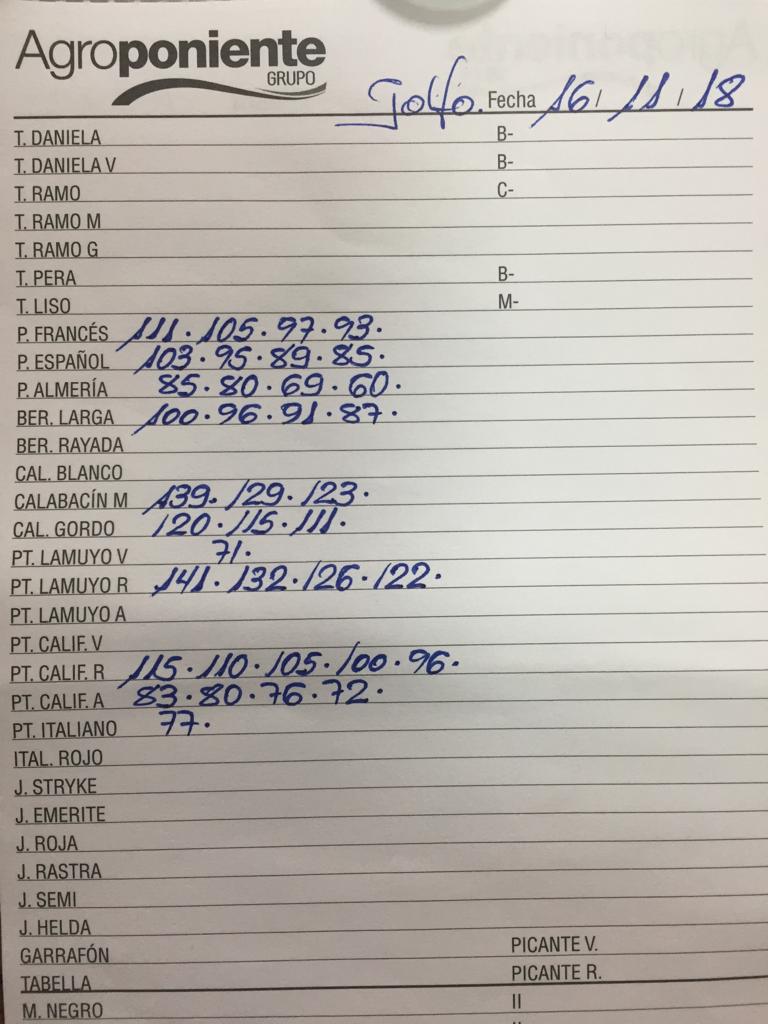 Agroponiente
GRUPO
Golfo. Fecha 16 / 11 / 18
T. DANIELA B-
T. DANIELA V B-
T. RAMO C-
T. RAMO M
T. RAMO G
T. PERA B-
T. LISO M-
P. FRANCÉS 111. 105. 97. 93.
P. ESPAÑOL 103. 95. 89. 85.
P. ALMERÍA 85. 80. 69. 60.
BER. LARGA 100. 96. 91. 87.
BER. RAYADA
CAL. BLANCO
CALABACÍN M 139. 129. 123.
CAL. GORDO 120. 115. 111.
PT. LAMUYO V 71.
PT. LAMUYO R 141. 132. 126. 122.
PT. LAMUYO A
PT. CALIF. V
PT. CALIF. R 115. 110. 105. 100. 96.
PT. CALIF. A 83. 80. 76. 72.
PT. ITALIANO 77.
ITAL. ROJO
J. STRYKE
J. EMERITE
J. ROJA
J. RASTRA
J. SEMI
J. HELDA
GARRAFÓN PICANTE V.
TABELLA PICANTE R.
M. NEGRO II